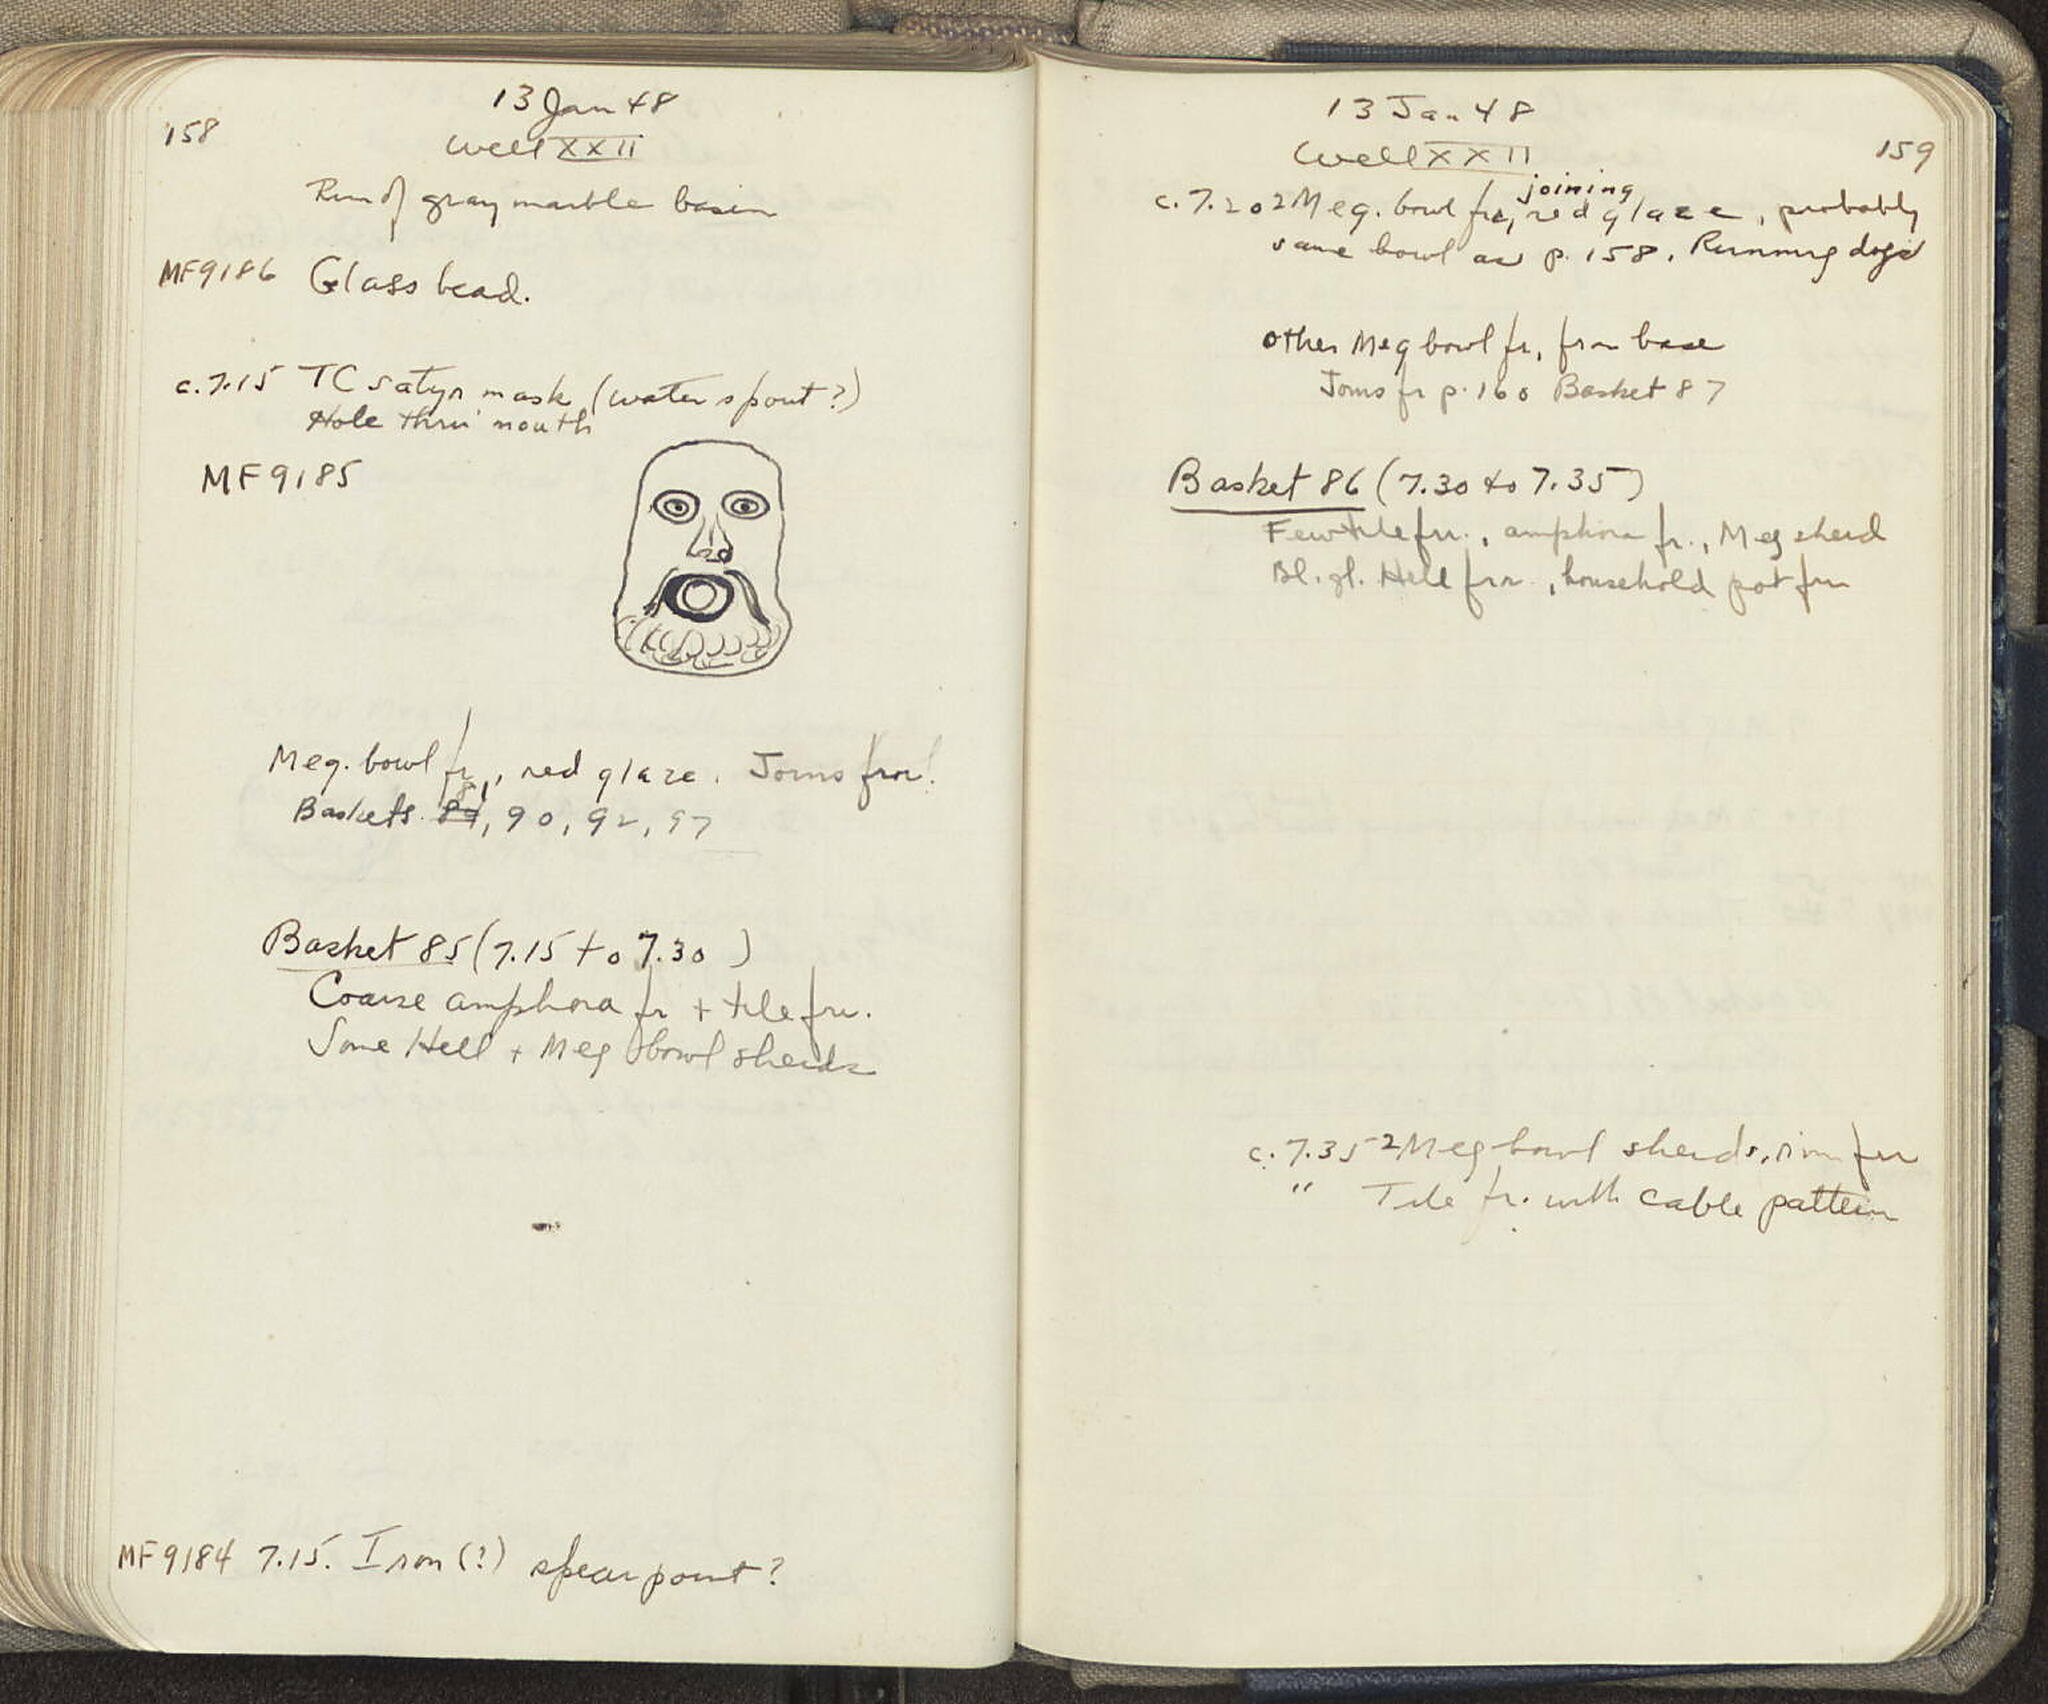 158
13 Jan 48
Well XXII
Rim of gray marble basin
MF9186 Glass bead.
c.7.15 TC satyr mask (water spout?)
Hole thru mouth
MF9185
Meg. bowl fr., red glaze. Joins frr.
Baskets 81, 90, 92, 97
Basket 85 (7.15 to 7.30)
Coarse amphora fr + tile frr.
Some Hell + Meg bowl sherds
MF9184 7.15. Iron (?) spear point?
13 Jan 48
Well XXII
159
c.7.20 2 Meg. bowl frr, joining red glaze, probably
same bowl as p. 158. Running dogs
Other Meg bowl fr, from base
Joins fr p. 160 Basket 87
Basket 86 (7.30 to 7.35)
Few tile frr., amphora fr., Meg sherd
Bl. gl. Hell frr., household pot frr
c. 7.35 2 Meg bowl sherds, rim frr
" Tile fr. with cable pattern